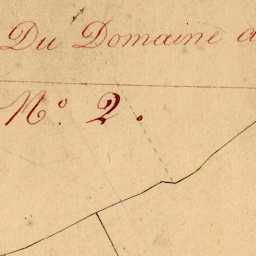 Du Domaine d
N° 2.